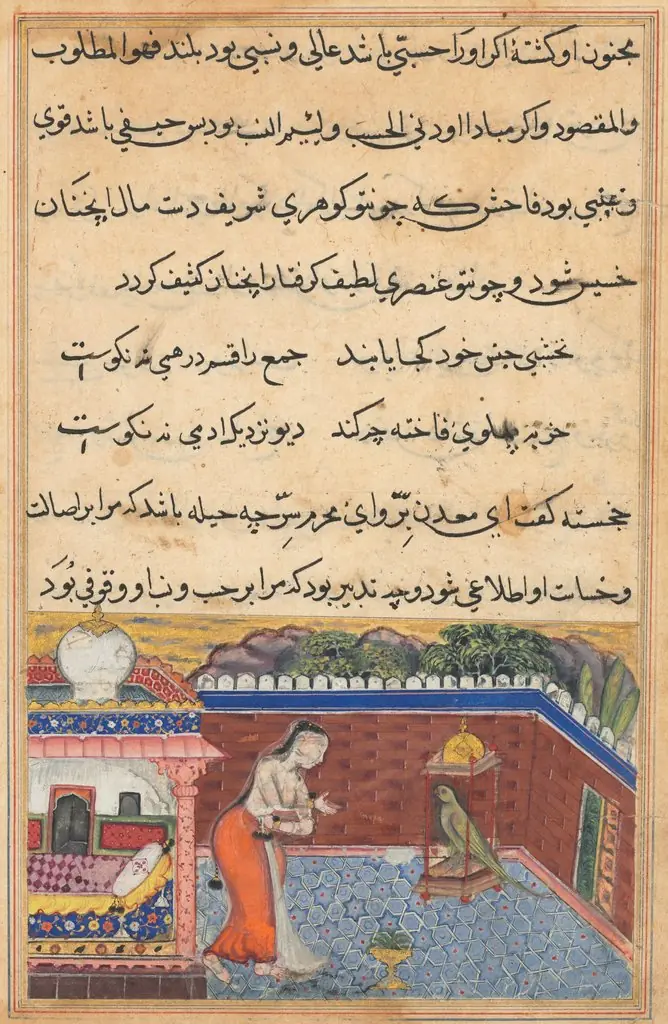 مجنون او کشتهٔ اکر او را حسبی باشد عالی و نسبی بود بلند فهو المطلوب
والمقصود و اکر مبادا او دنی الحسب و لئیم النسب بود بس حیفی باشد قوی
و غبنی بود فاحش که چو نتو کوهری شریف دست مال انچنان
خسیس شود و چو نتو عنصری لطیف کرفتار انچنان کثیف کردد
نخشبی جنس خود کجا یابند جمع را قسم درهمی نه نکوست
خر به پهلوی فاخته چه کند دیو نزدیک ادمی نه نکوست
خجسته کفت ای معدن برّ و ای محرم سرّ چه حیله باشد که مرا بر اصالت
و خساست او اطلاعی شود و چه تدبیر بود که مرا بر حسب و نسب او وقوفی بُوَد